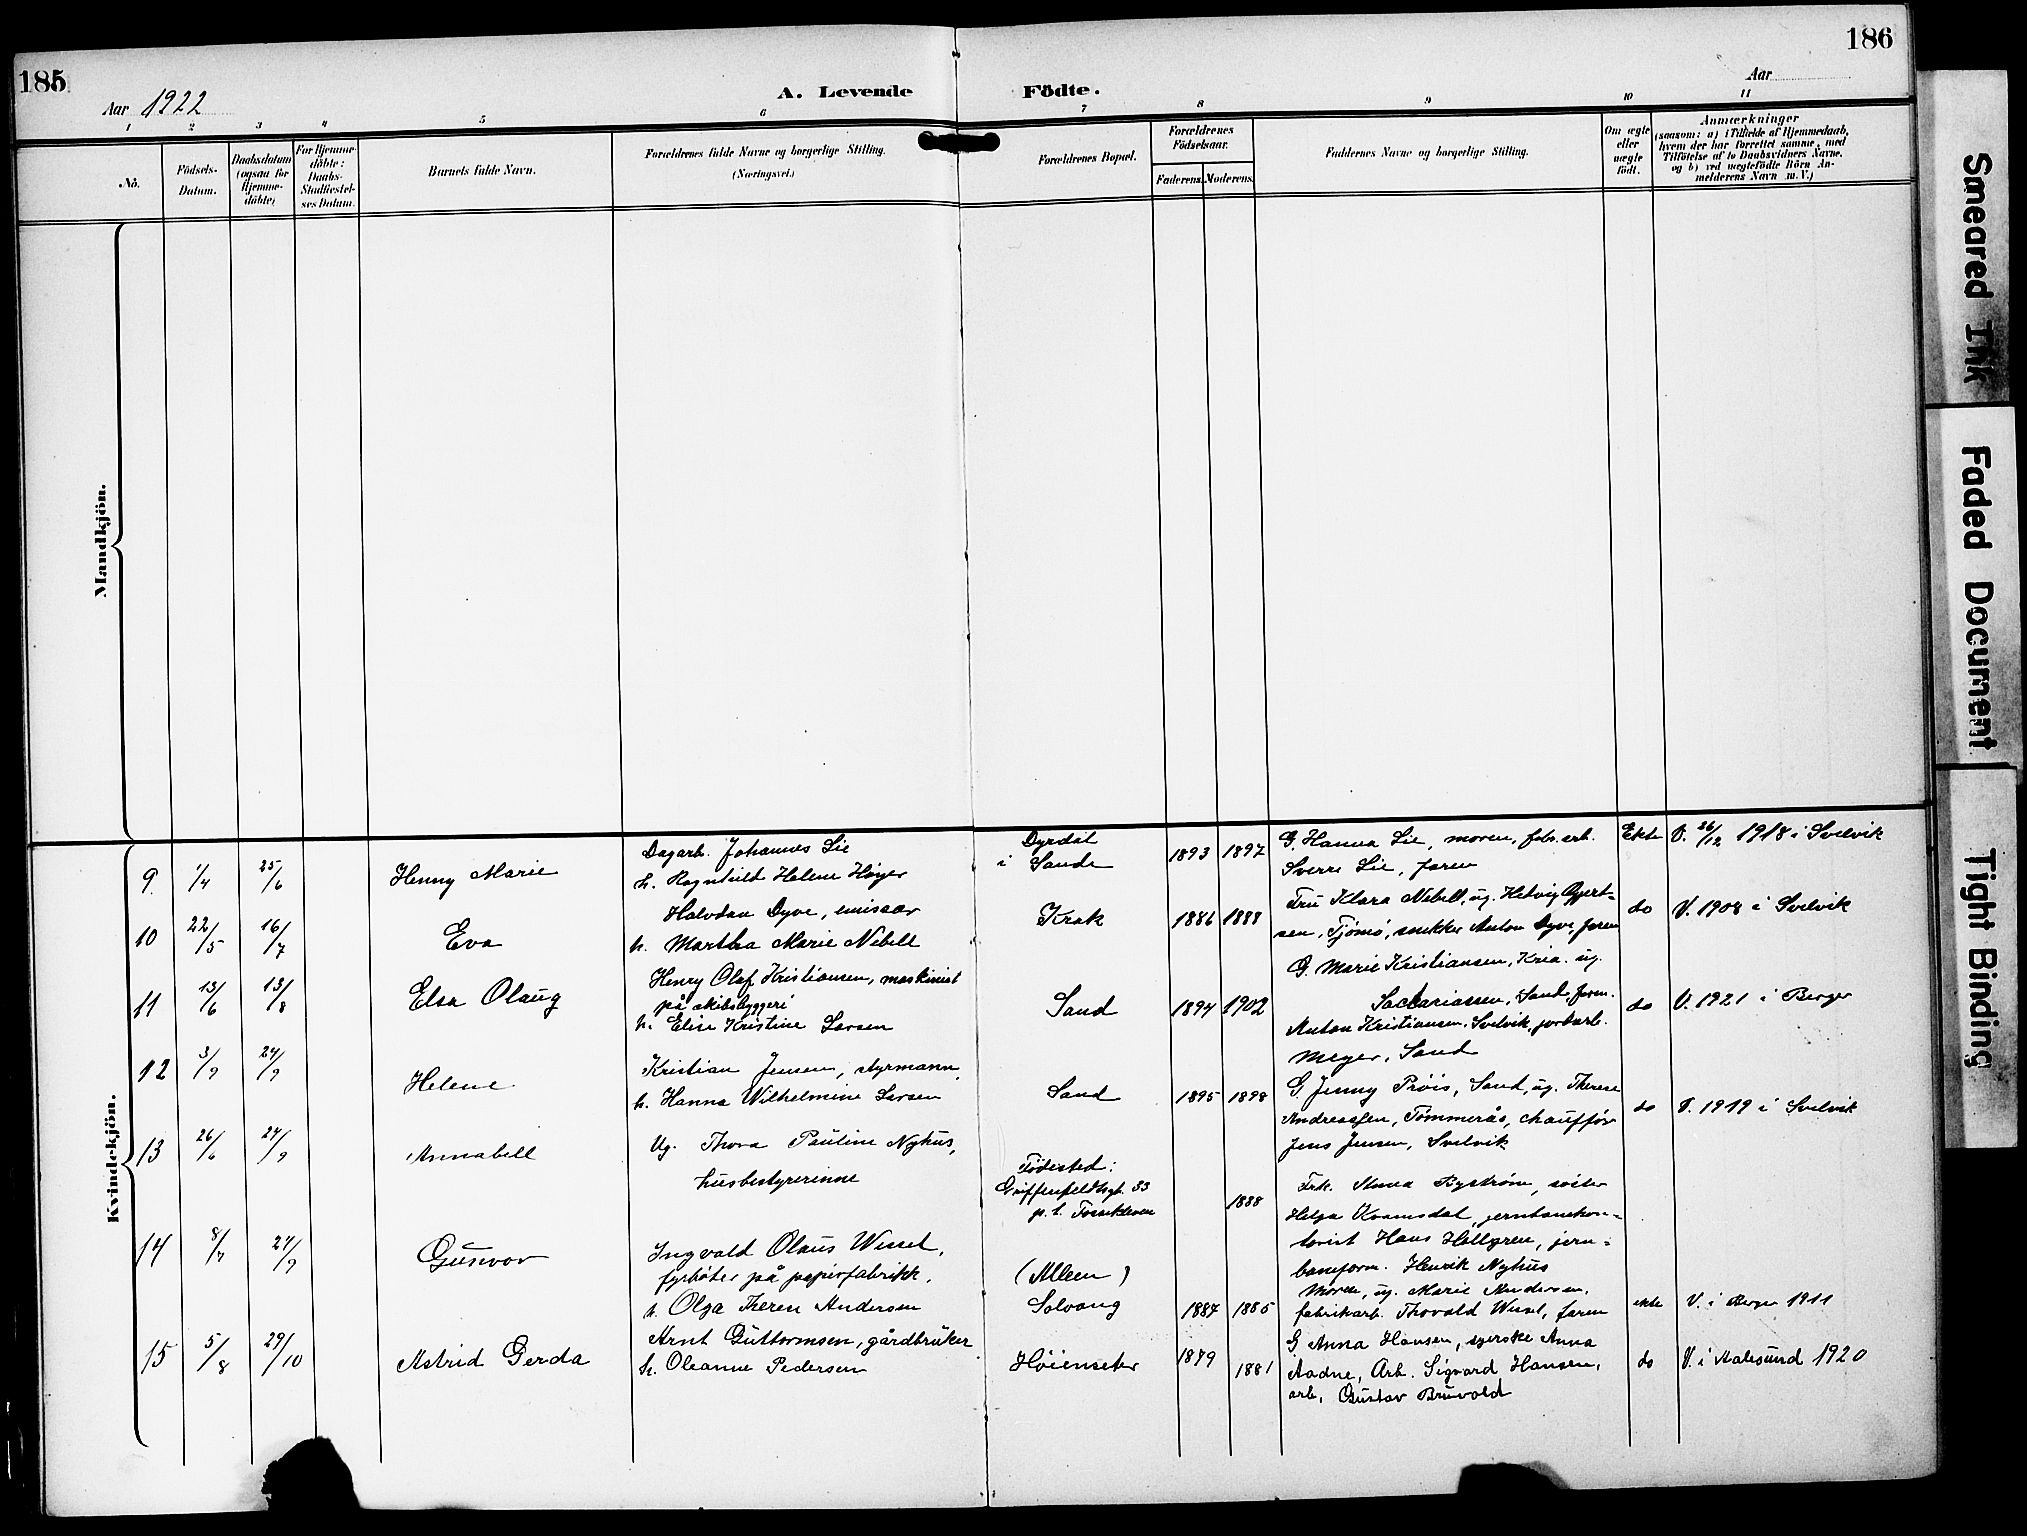 185
186
Aar 1922
A. Levende
Födte.
Aar
1 2 3 4 5 6 7 8 9 10 11
No.
Födsels-
Datum.
Daabsdatum
(ogsaa for
Hjemme-
döbte)
For Hjemme-
döbte:
Daabs-
Stadfæstel-
ses Datum.
Barnets fulde Navn.
Forældrenes fulde Navne og borgerlige Stilling.
(Næringsvei.)
Forældrenes Bopæl.
Forældrenes
Födselsaar.
Faderens.
Moderens.
Faddernes Navne og borgerlige Stilling.
Om ægte
eller
uægte
födt.
Anmærkninger
(saasom: a) i Tilfælde af Hjemmedaab,
hvem der har forrettet samme, med
Tilföielse af to Daabsvidners Navne,
og b) ved uægtefödte Börn An-
melderens Navn m. V.)
Mandkjön.
Kvindekjön.
9 1/4 25/6 Henny Marie
Dagarb. Johannes Lie
h. Ragnhild Helene Høyer
Dyrdal
i Sande
1893 1897
G. Hanna Lie, moren, fabr.arb.
Sverre Lie, faren
Ekte
V. 26/12 1918 i Svelvik
10 22/5 16/7 Eva
Halvdan Dyve, emissær
h. Martha Marie Nebell
Krok
1886 1888
Fru Klara Nebell, ug. Helvig Gjert-
sen, Tjømø, snekker Anton Dyve, faren
do
V. 1908 i Svelvik
11 13/6 13/8 Elsa Olaug
Henry Olaf Kristiansen, maskinist
på skibsbyggeri
h. Elise Kristine Larsen
Sand
1894 1902
G. Marie Kristiansen, Kria. ug.
Sachariassen, Sand, faren.
Anton Kristiansen, Svelvik, jordarb.
Meyer, Sand
do
V. 1921 i Berger
12 3/9 24/9 Helene
Kristian Jensen, styrmann,
h. Hanna Wilhelmine Larsen
Sand
1895 1898
G. Jenny Prøis, Sand, ug. Therese
Andreassen, Tømmerås, chauffør
Jens Jensen, Svelvik
do
V. 1919 i Svelvik
13 26/6 24/9 Annabell
Ug. Thora Pauline Nyhus,
husbestyrerinne
Fødested:
Griffenfeldtsgt. 33
p. t. Fossekleven
1888
Frk. Anna Byström, søster
Helga Kvamsdal, jernbanekon-
torist Hans Hellgren, jern-
baneform. Henrik Nyhus
14 8/7 24/9 Gunvor
Ingvald Olaus Wessel,
fyrbøter på papirfabrikk,
h. Olga Theren Andersen
(Alleen)
Solvang
1887 1885
Moren, ug. Marie Andersen,
fabrikarb. Thorvald Wessel, faren
ekte
V. i Berger 1911
15 5/8 29/10 Astrid Gerda
Arnt Guttormsen, gårdbruker
h. Oleanne Pedersen
Høienseter
1879 1881
G. Anna Hansen, syerske Anna
Aadne, Arb. Sigvard Hansen,
arb. Gustav Bruvold
do
V. i Aalesund 1920
Smeared Ink
Faded Document
Tight Binding